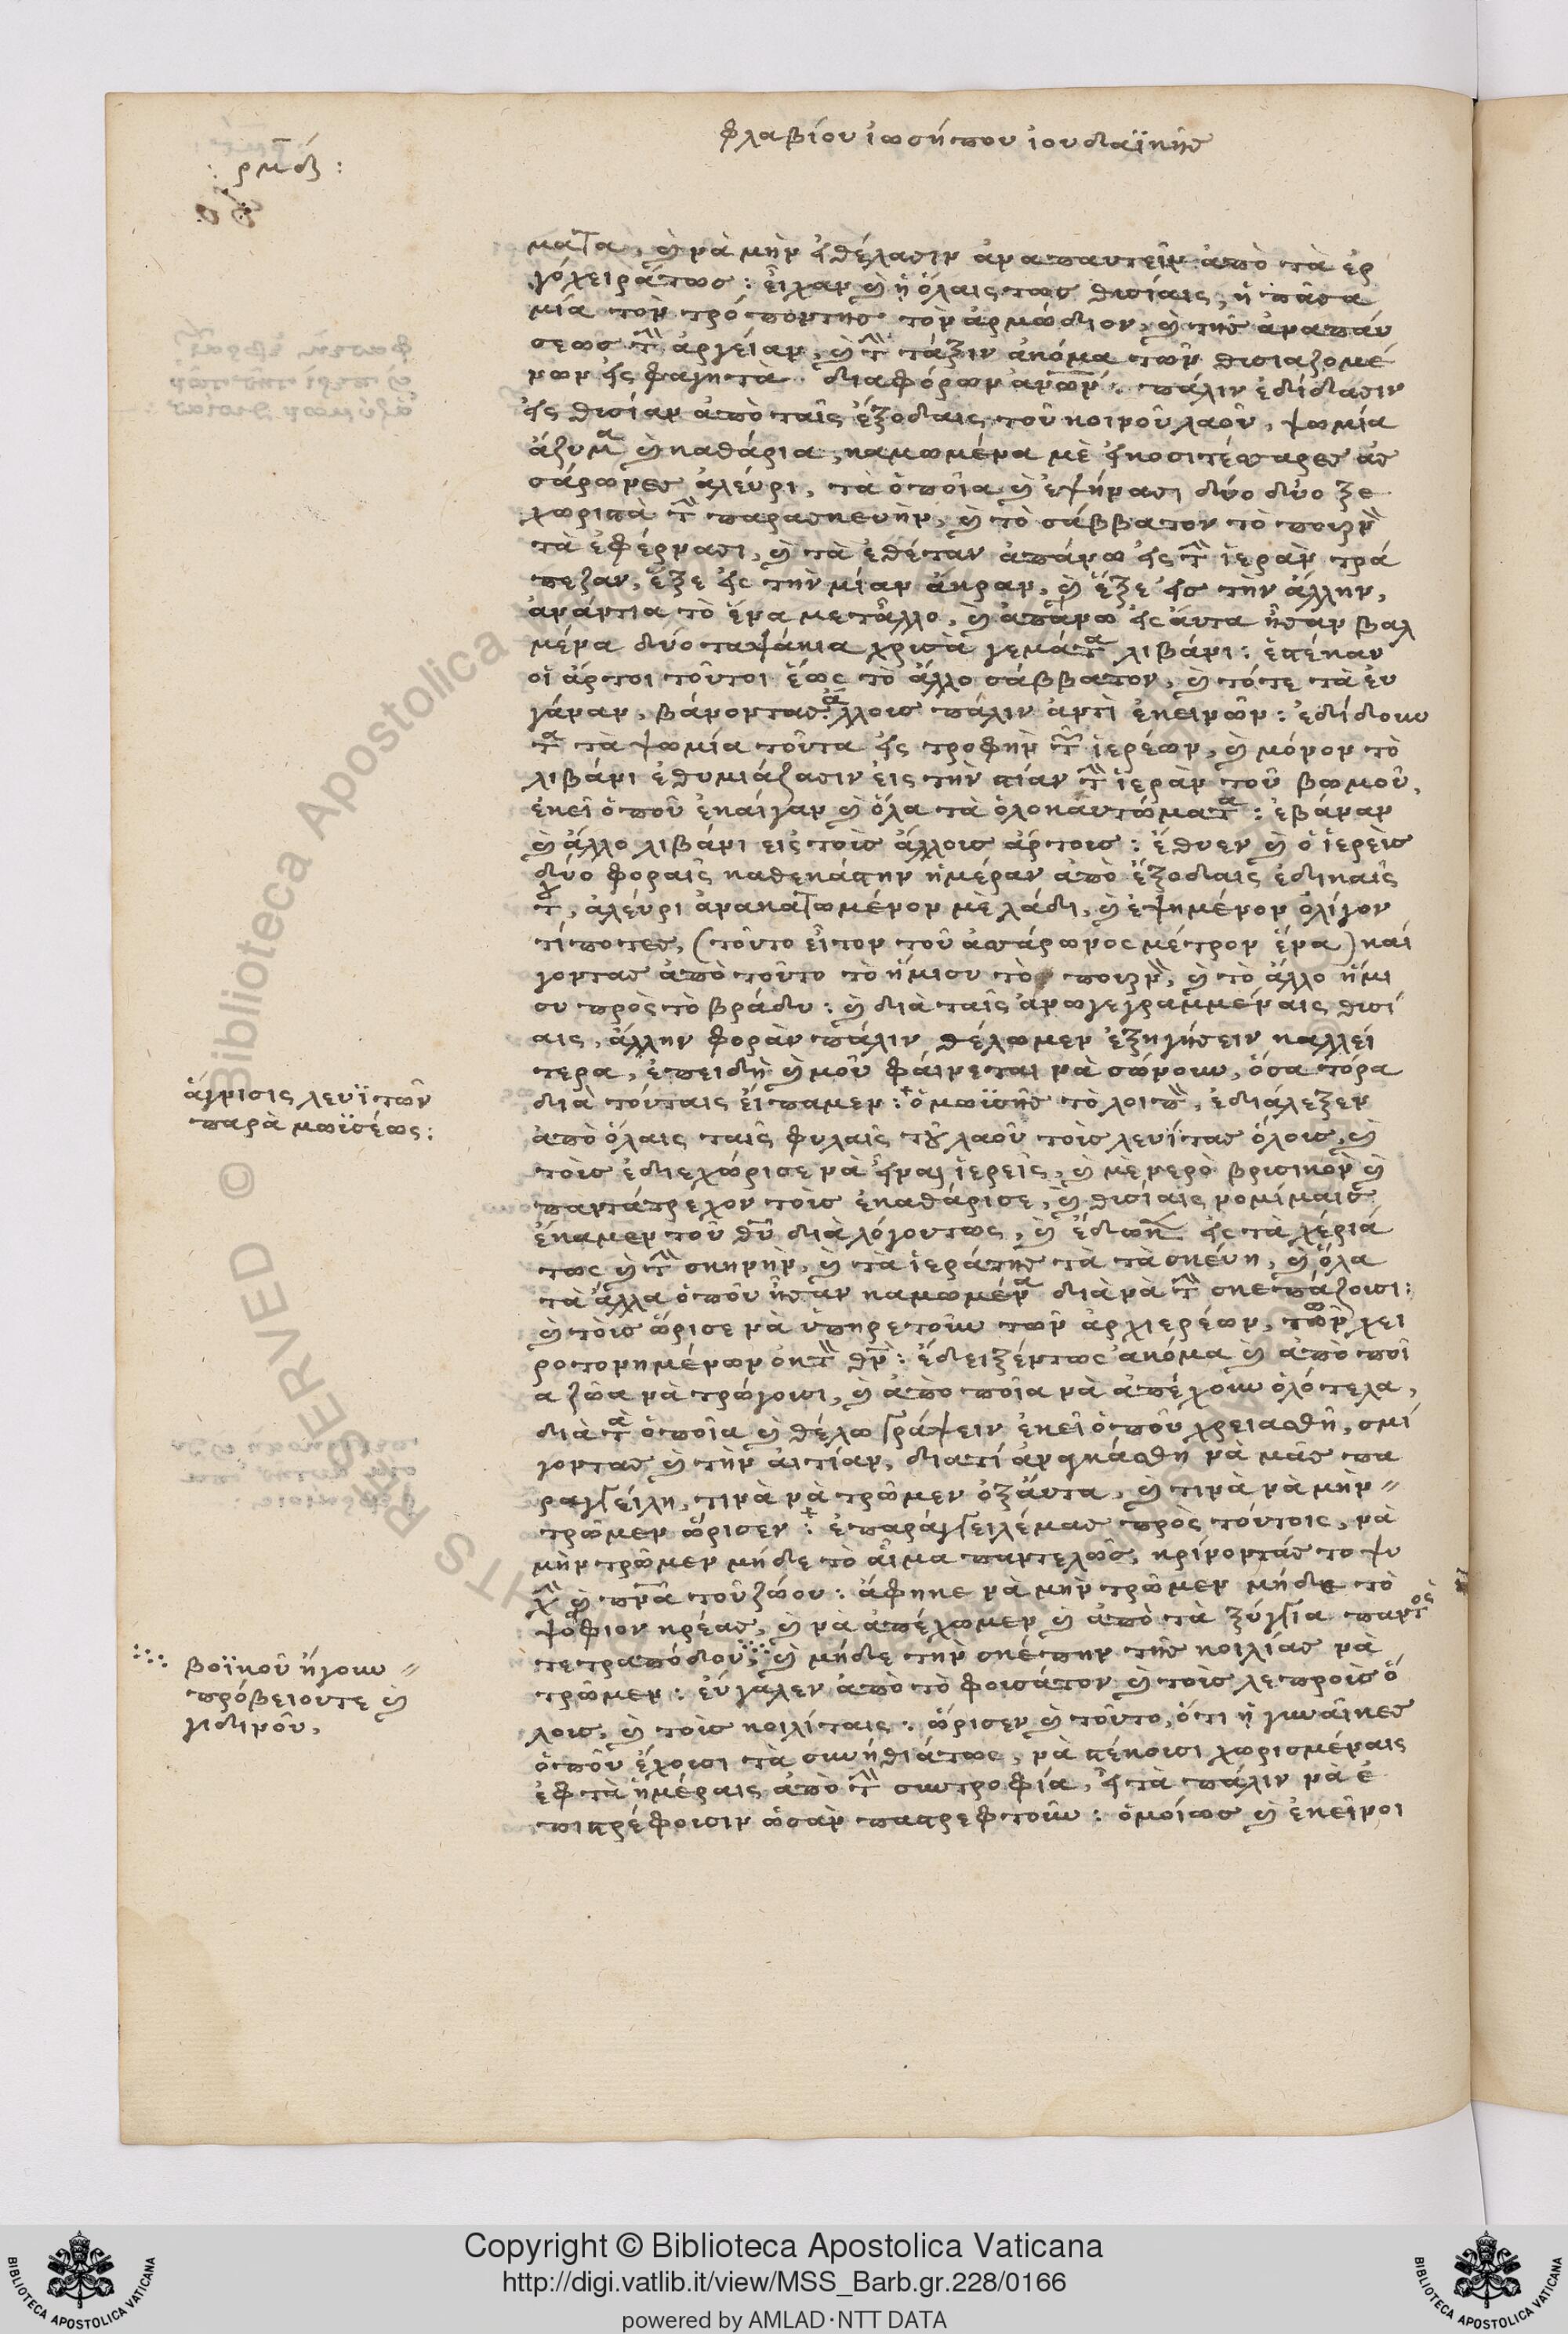 φλαβίου ἰωσήπου ἰουδαϊκῆς
: ρμδ :
ματα, καὶ νὰ μὴν ἠθέλασιν ἀναπαυτεῖν ἀπὸ τὰ ἐρ
γόχειράτως : εἶχαν καὶ ἡ ὅλαις τως θισίαις, ἡ πᾶσα
μία τὸν τρόπον της τὸν ἁρμόδιον, καὶ τῆς ἀναπάυ
σεως τὴν ἀργείαν, καὶ τὴν τάξιν ἀκόμα τῶν θισιαζομέ
νων εἰς φαγητὰ διαφόρων ἀνων : πάλιν ἐδίδασιν
εἰς θισίαν ἀπὸ ταῖς ἐξοδίαις τοῦ κοινοῦ λαοῦ, ψωμία
ἄζυμα καὶ καθάρια, καμωμένα μὲ εἰκοσιτέσαρες ἀσ
σάρωνες ἀλεύρι, τὰ ὁποῖα καὶ ἐψήνασι δύο δύο ξε
χωριστὰ τὴν παρασκευὴν, καὶ τὸ σάββατον τὸ πουρνὸν
τὰ ἐφέρνασι, καὶ τὰ ἐθέταν ἀπάνω εἰς τὴν ἱερὰν τρά
πεζαν, ἕξε εἰς τὴν μίαν ἄκραν, καὶ ἕξε εἰς τὴν ἄλλην,
ἀνάντια τὸ ἕνα μετἄλλο, καὶ ἀπάνω εἰς ἄυτα ἦσαν βαλ
μένα δύο ταψάκια χρισὰ γεμάτα λιβάνι : ἐστέκαν
οἱ ἄρτοι τοῦτοι ἕως τὸ ἄλλο σάββατον, καὶ τότε τὰ ἐυ
γάναν, βάνοντας ἄλλους πάλιν ἀντὶ ἐκεινῶν : ἐδίδουν
τα τὰ ψωμία τοῦτα εἰς τροφὴν τῶν ἱερέων, καὶ μόνον τὸ
λιβάνι ἐθυμιάζασιν εἰς τὴν στίαν τὴν ἱερὰν τοῦ βωμοῦ,
ἐκεῖ ὁποῦ ἐκαίγαν καὶ ὅλα τὰ ὁλοκάυτώματα : ἐβάναν
καὶ ἄλλο λιβάνι εἰς τοὶς ἄλλοις ἄρτοις : ἔθυεν καὶ ὁ ἱερεὶς
δύο φοραῖς καθεκάστην ἡμέραν ἀπὸ ἔξοδίαις ἐδικαῖς
του, ἀλεύρι ἀνακατωμένον μὲ λάδι, καὶ ἐψημένον ὀλίγον
τίποτες, (τοῦτο εἶτον τοῦ ἀσάρωνος μέτρον ἕνα) καί
γοντας ἀπὸ τοῦτο τὸ ἥμισυ τὸ πουρνὸν, καὶ τὸ ἄλλο ἥμι
συ πρὸς τὸ βράδυ : καὶ διὰ ταῖς ἀνωγεγραμμέναις θισί
αις, ἄλλην φορὰν πάλιν θέλωμεν ἐξηγήσειν καλλεί
τερα, ἐπειδὴ καὶ μοῦ φαίνεται νὰ σώνουν, ὅσα τόρα
διὰ τούταις εἴπαμεν : ὁ μωϊσῆς τὸ λοιπὸν, ἐδιάλεξεν
ἀπὸ ὅλαις ταῖς φυλαῖς τοῦ λαοῦ τοὶς λευΐτας ὅλοις, καὶ
τοὶς ἐδιεχώρισε νὰ εἶναι ἱερεῖς, καὶ μὲ νερὸ βρισικὸν καὶ
παντάτρεχον τοὶς ἐκαθάρισε, καὶ θισίαις νομίμαις
ἔκαμεν τοῦ θῦ διὰ λόγουντως, καὶ ἔδωκεν εἰς τὰ χέριά
τως καὶ τὴν σκηνὴν, καὶ τὰ ἱεράτης τὰ τὰ σκέυη, καὶ ὅλα
τὰ ἄλλα ὁποῦ ἦσαν καμωμένα διὰ νὰ τὴν σκεπάζουσι :
καὶ τοὶς ὥρισε νὰ ὑπηρετοῦν τῶν ἀρχιερέων, τῶν χει
ροτονημένων ἐκ τὸν θν : ἔδειξέντως ἀκόμα καὶ ἀπὸ ποῖ
α ζῶα νὰ τρώγουσι, καὶ ἀπὸ ποῖα νὰ ἀπέχουν ὁλότελα,
διὰ τὰ ὁποῖα καὶ θέλω γράψειν ἐκεῖ ὁποῦ χρειασθῆ, σμί
γοντας καὶ τὴν ἀιτίαν, διατί ἀναγκάσθη νὰ μᾶς πα
ραγγείλη, τινὰ νὰ τρῶμεν ἐξἄυτα, καὶ τινὰ νὰ μὴν
τρῶμεν ὥρισεν : ἐπαράγγειλέμας πρὸς τούτοις, νὰ
μὴν τρῶμεν μήδε τὸ αἷμα παντελῶς, κρίνοντάς το ψυ
χὴν καὶ πνα τοῦ ζώου : ἄφηκε νὰ μὴν τρῶμεν μήδε τὸ
ψόφιον κρέας, καὶ νὰ ἀπέχωμεν καὶ ἀπὸ τὰ ξύγγια παντὸς
τετραπόδου, καὶ μήδε τὴν σκέπην τῆς κοιλίας νὰ
τρῶμεν : ἐύγαλεν ἀπὸ τὸ φοισάτον καὶ τοὶς λεπροὶς ὅ
λοις, καὶ τοὶς κοιλίταις : ὥρισεν καὶ τοῦτο, ὅτι ἡ γυναῖκες
ὁποῦ ἔχουσι τὰ συνήθιάτως, νὰ στέκουσι χωρισμέναις
ἑφτὰ ἡμέραις ἀπὸ τὴν συντροφία, εἶτὰ πάλιν νὰ ἐ
πιστρέφουσιν ὡσὰν παστρεφτοῦν : ὁμοίως καὶ ἐκεῖνοι
ἅγνισις λευϊτῶν
παρὰ μωϊσέως :
βοϊκοῦ ἤγουν
πρόβειουτε καὶ
γιδινοῦ,
Copyright © Biblioteca Apostolica Vaticana
http://digi.vatlib.it/view/MSS_Barb.gr.228/0166
powered by AMLAD·NTT DATA